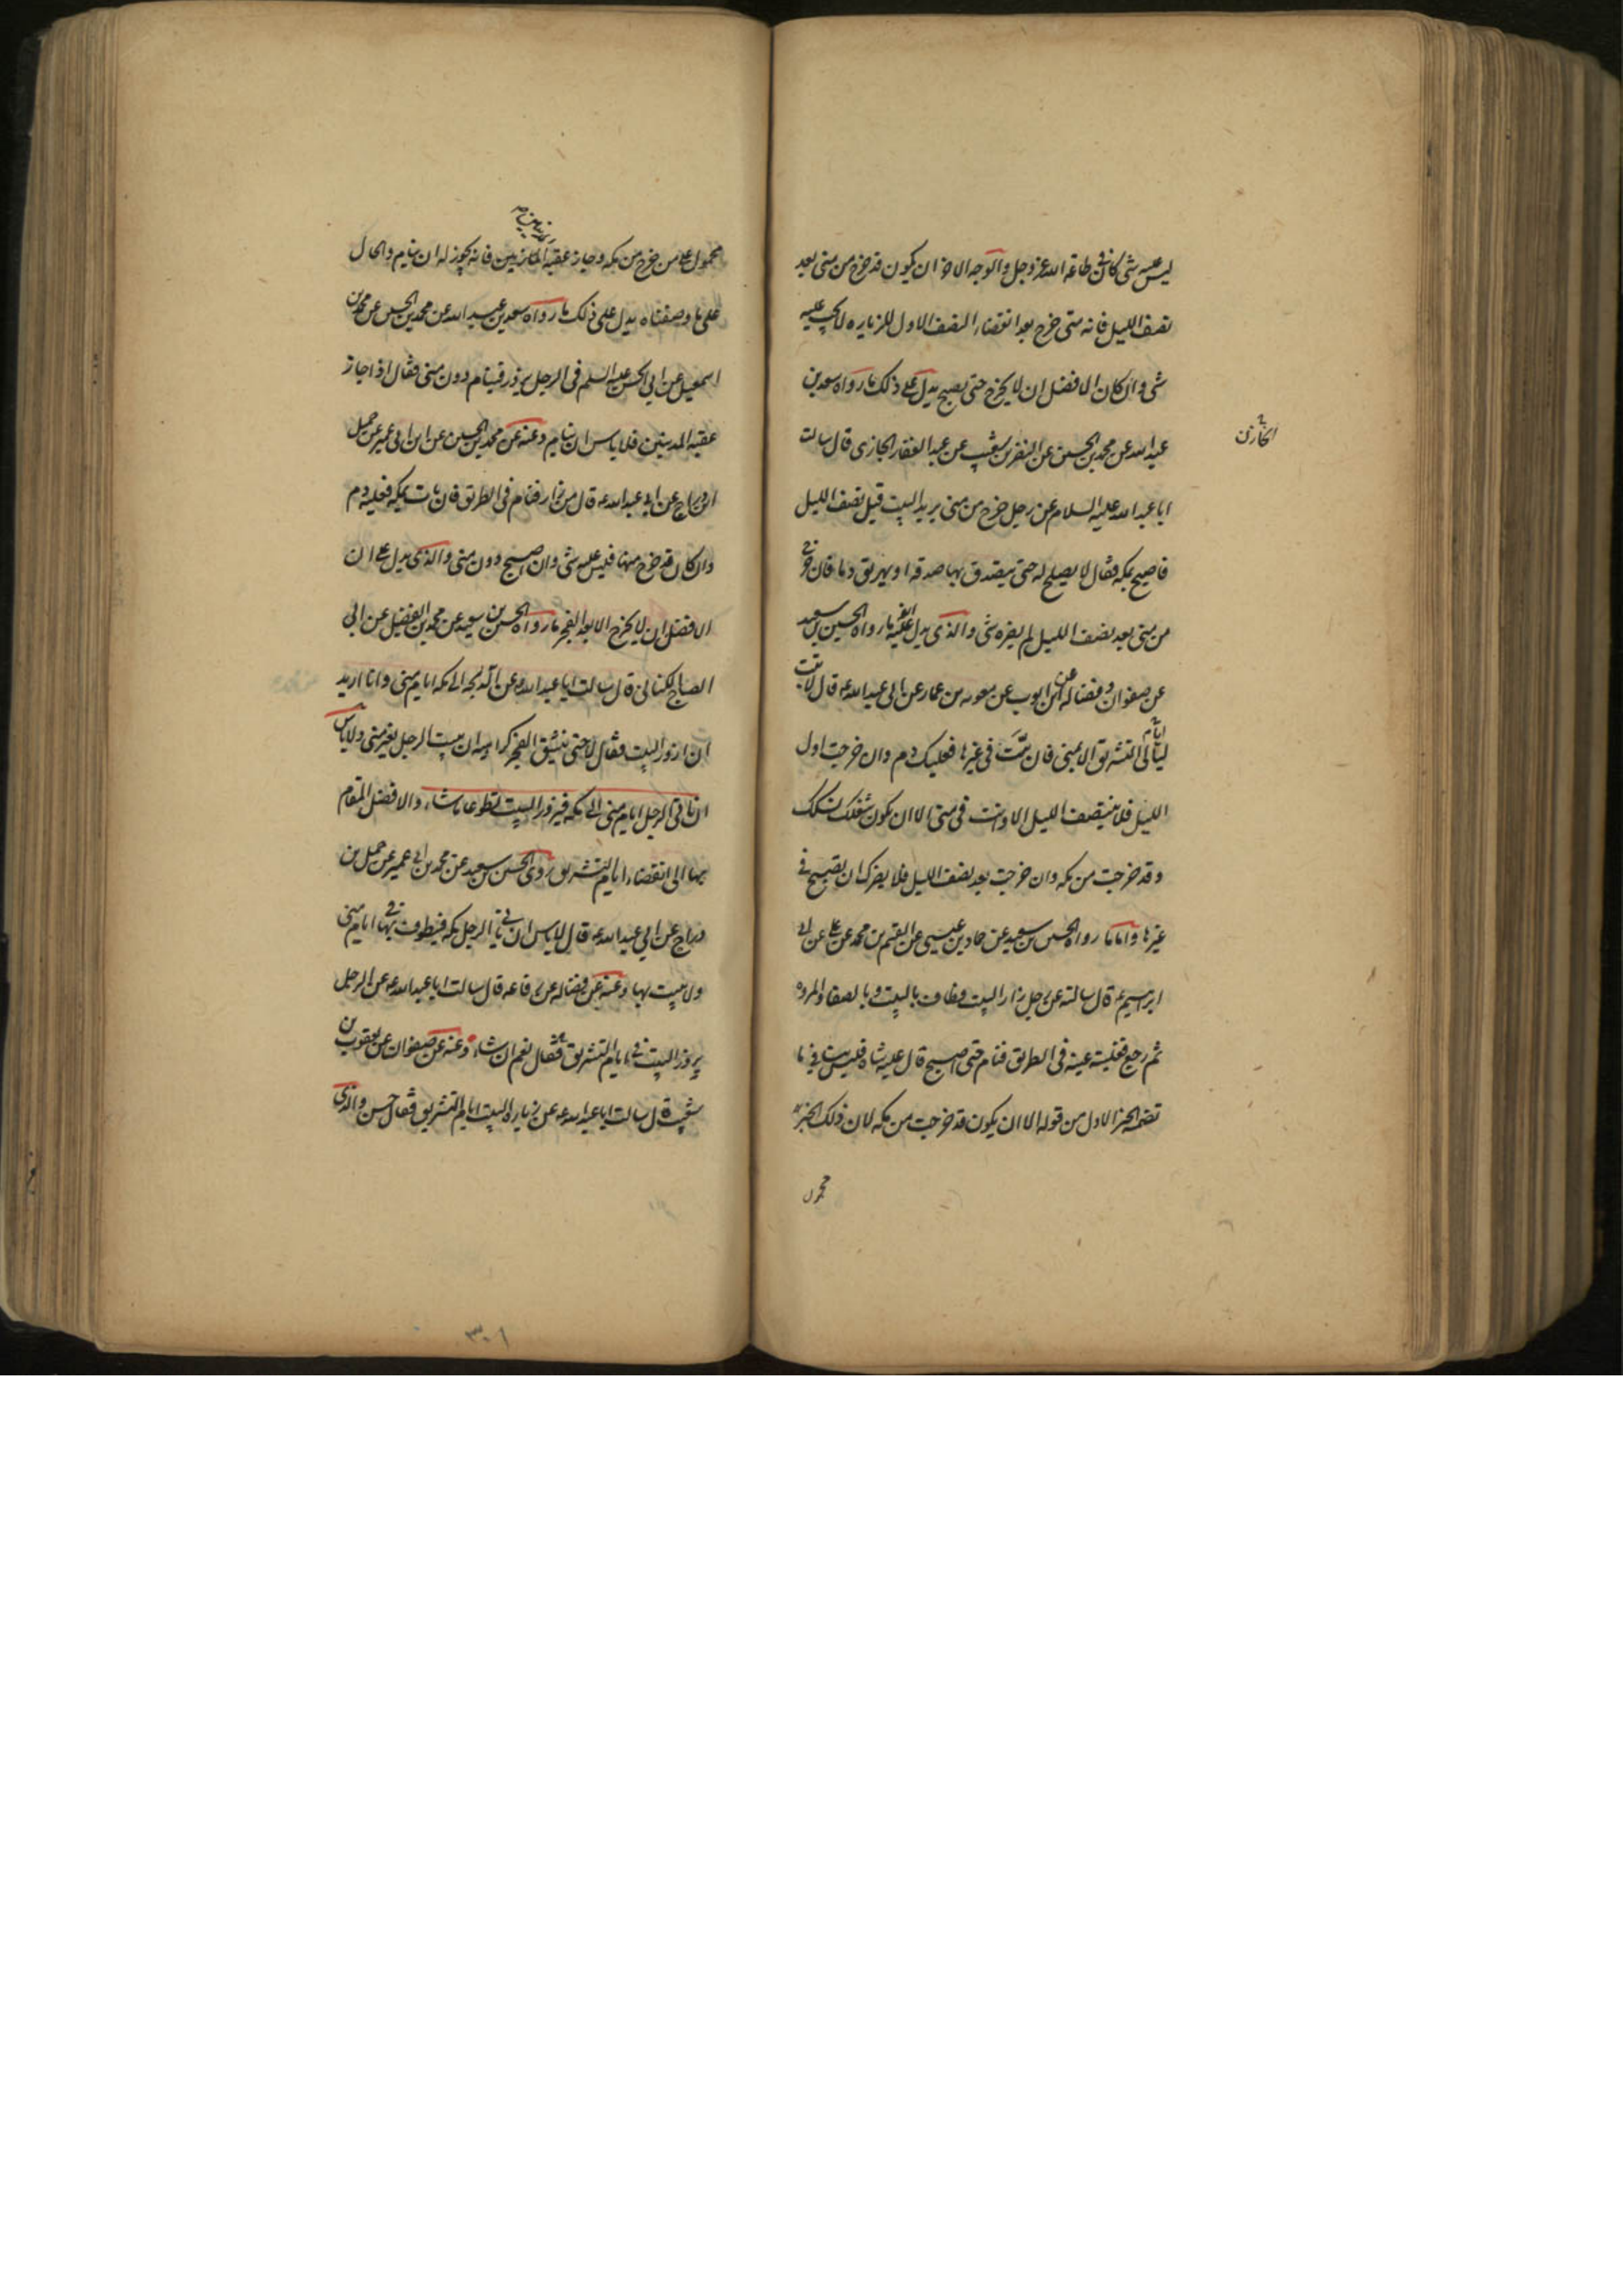 ليس عليه شي كان في طاعة الله عز وجل والوجه الاخر ان يكون قد خرج من منى بعد
نصف الليل فانه متى خرج بعد انقضاء النصف الاول للزياره لا يجب عليه
شي وان كان الافضل ان لا يخرج حتى يصبح يدل على ذلك ما رواه سعد بن
عبد الله عن محمد بن الحسين عن النضر بن شعيب عن عبد الغفار الجازى قال سالت
الجازي
ابا عبد الله عليه السلام عن رجل خرج من منى يريد البيت قبل نصف الليل
فاصبح بمكه فقال لا يصلح له حتى يتصدق بها صدقه او يهريق دما فان خرج
من منى بعد نصف الليل لم يضره شي والذى يدل عليه ايضا ما رواه الحسين بن سعيد
عن صفوان وفضاله عن ابن ايوب عن معويه بن عمار عن ابى عبد الله ع قال لا تبت
ليالى ايام التشريق الا بمنى فان بت فى غيرها فعليك دم وان خرجت اول
الليل فلا ينتصف الليل الا وانت فى منى الا ان يكون شغلك نسكك
وقد خرجت من مكه وان خرجت بعد نصف الليل فلا يضرك ان تصبح في
غيرها واما ما رواه الحسين بن سعيد عن حماد بن عيسى عن القسم بن محمد عن على عن ابى
ابرهيم ع قال سالته عن رجل زار البيت فطاف بالبيت وبالصفا والمروه
ثم رجع فغلبته عينه فى الطريق فنام حتى اصبح قال عليه شاه فليس ينافى ما
تضمنه الخبر الاول من قوله الا ان يكون قد خرجت من مكه لان ذلك الخبر
محمول
محمول على من خرج من مكه وجاز عقبه المدنيين فانه يجوز له ان ينام والحال
على ما وصفناه يدل على ذلك ما رواه سعد بن عبد الله عن محمد بن الحسين عن محمد بن
اسمعيل عن ابى الحسن عليه السلم فى الرجل يزور فينام دون منى فقال اذا جاز
عقبه المدنيين فلا باس ان ينام وعنه عن محمد بن الحسين عن ابن ابى عمير عن جميل
ابن دراج عن ابى عبد الله ع قال من زار فنام فى الطريق فان بات بمكه فعليه دم
وان كان قد خرج منها فليس عليه شى وان اصبح دون منى والذى يدل على ان
الافضل ان لا يخرج الا بعد الفجر ما رواه الحسين بن سعيد عن محمد بن الفضيل عن ابى
الصباح الكنانى قال سالت ابا عبد الله ع عن الدلجه الى مكه ايام منى وانا اريد
ان ازور البيت فقال لا حتى ينشق الفجر كراهيه ان يبيت الرجل بغير منى ولا باس
ان ياتى الرجل ايام منى الى مكه فيزور البيت تطوعا ما شاء والافضل المقام
بها الى انقضاء ايام التشريق روى الحسين بن سعيد عن محمد بن ابى عمير عن جميل بن
دراج عن ابى عبد الله ع قال لا باس ان ياتى الرجل مكه فيطوف بها فى ايام منى
ولا يبيت بها وعنه عن فضاله عن رفاعه قال سالت ابا عبد الله ع عن الرجل
يزور البيت في ايام التشريق فقال نعم ان شاء وعنه عن صفوان عن يعقوب بن
شعيب قال سالت ابا عبد الله ع عن زياره البيت ايام التشريق فقال حسن والذى
٣٠١